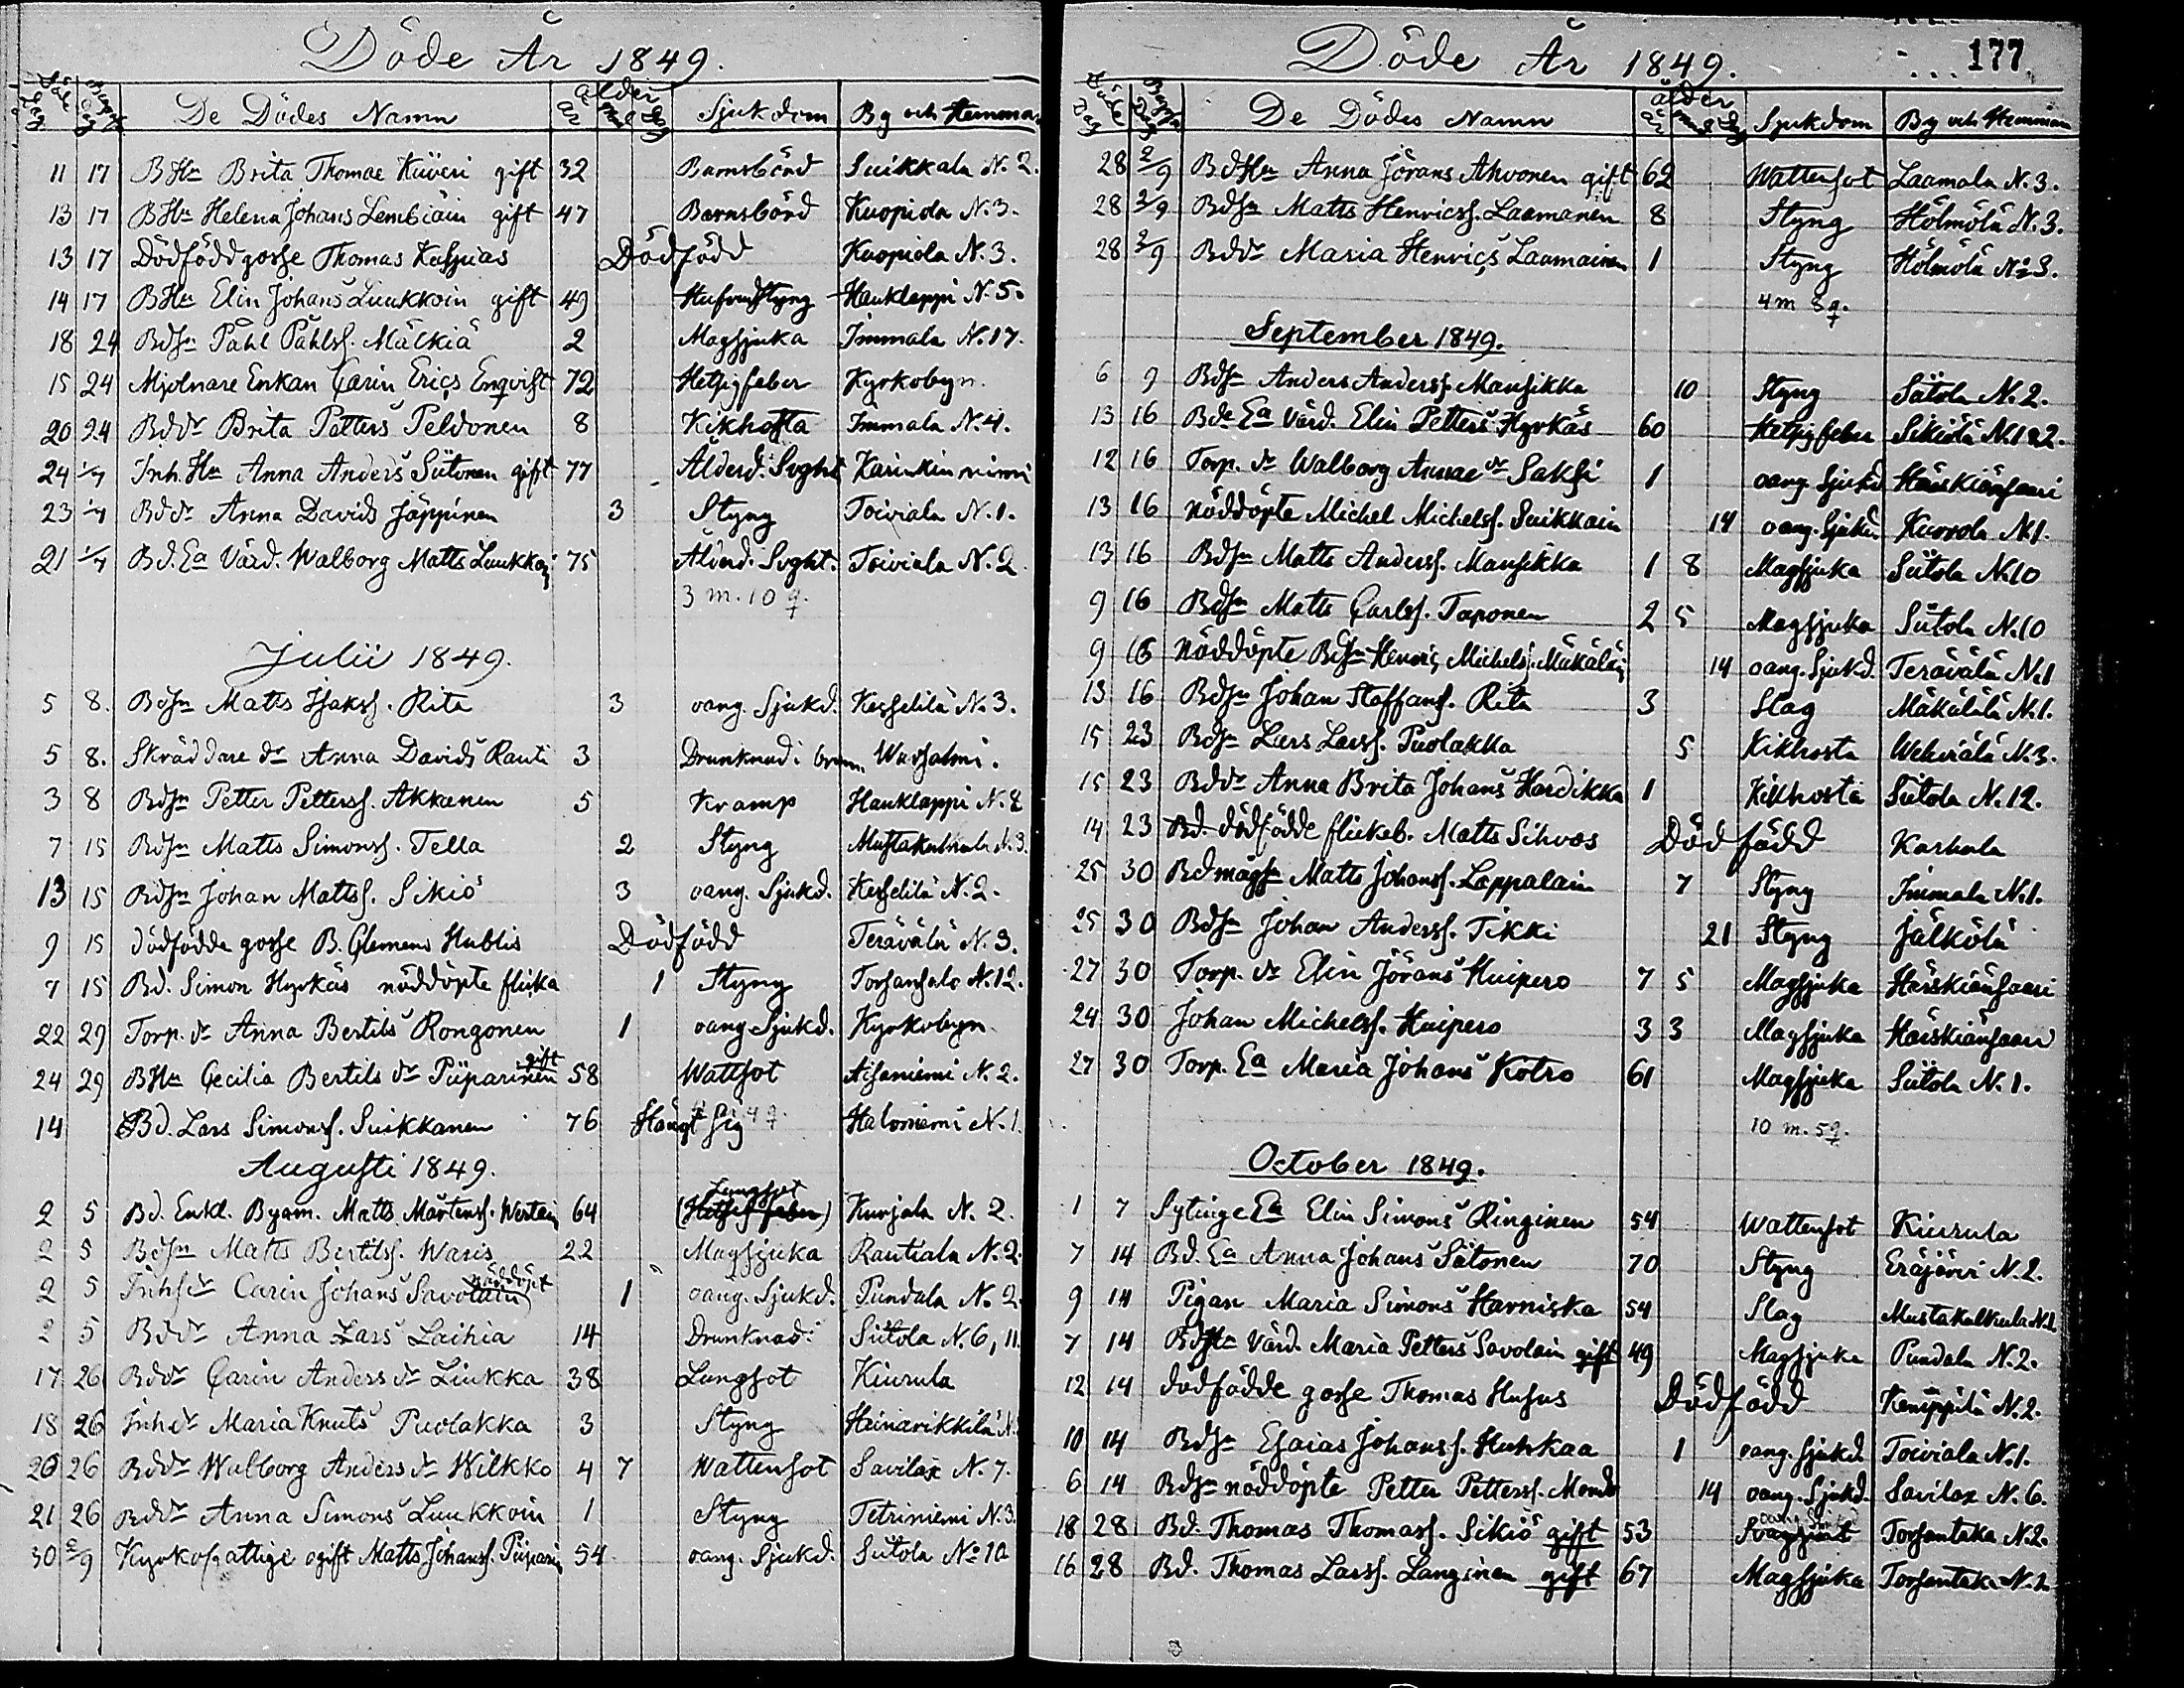 Döde År 1849.
Döde Dag Begrafn. Dag De Dödes Namn ålder år mån dag Sjukdom By och Hemman
11 17 BHu Brita Thomae Kiiveri gift 32 Barnsbörd Suikkala N. 2.
13 17 BHu Helena Johans Lembiäin gift 47 Barnsbörd Kuopiola N. 3.
13 17 Dödfödd gosse Thomas Kaspias Dödfödd Kuopiola N. 3.
14 17 BHu Elin Johans Luukkoin gift 49 Hufvudstyng Hauklappi N. 5.
18 24 Bdsn Påhl Påhlss. Mälkiä 2 Magsjuka Immala N. 17.
15 24 Mjölnare Enkan Carin Erics Enqvist 72 Hetsigfeber Kyrkobyn.
20 24 Bddr Brita Petters Peldonen 8 Kikhosta Immala N. 4.
24 1/7 Inh. Hu Anna Anders Siitonen gift 77 Ålderd. Svght Karinkinniemi
23 1/7 Bddr Anna Davids Jäppinen 3 Styng Toiviala N. 1.
21 1/7 Bd. Ea Värd. Walborg Matts Luukkoi 75 Ålderd. Svght. Toiviala N. 2
3 m. 10 q.
Julii 1849.
5 8. Bdsn Matts Isakss. Rita 3 oang. Sjukd. Kesselilä N. 3.
5 8. Skräddare dr Anna Davids Rauti 3 Drunknad i brun. Warsalmi.
3 8 Bdsn Petter Petterss. Akkanen 5 Kramp Hauklappi N. 8
7 15 Bdsn Matts Simonss. Tella 2 Styng Mustakulkula N. 3.
13 15 Bdsn Johan Mattss. Sikiö 3 oang. Sjukd. Kesselilä N. 2.
9 15 dödfödda gosse B. Clemens Hublis Dödfödd Terävälä N. 3.
7 15 Bd. Simon Hyrkäs nöddöpte flicka 1 Styng Torsansalo N. 12.
22 29 Torp. dr Anna Bertils Rongonen 1 oang Sjukd. Kyrkobyn
24 29 BHu Cecilia Bertils dr Piiparinen gift 58 Wattsot Aisaniemi N. 2.
14 Bd. Lars Simonss. Suikkanen 76 Hängt sig Haloniemi N. 1.
Augusti 1849.
2 5 Bd. Enkl. Byam. Matts Mårtenss. Wertai 64 Lungsot (Hetsig feber) Kurjala N. 2.
2 5 Bdsn Matts Bertilss. Waris 22 Magsjuka Rautiala N. 2.
2 5 Inhsdr Carin Johans Savolain nöddöpt 1 oang. Sjukd. Pundala N. 2.
2 5 Bddr Anna Lars Laihia 14 Drunknad Siitola N. 6, 11.
17 26 Bddr Carin Anders dr Liukka 38 Lungsot Kiurula
18 26 Inhdr Maria Knuts Puolakka 3 Styng Heinarikkilä N.
20 26 Bddr Walborg Anders dr Wilkko 4 7 Wattensot Savilax N. 7.
21 26 Bddr Anna Simons Luukkoin 1 Styng Tetriniemi N. 3.
30 2/9 Kyrkofattige ogift Matts Johanss. Piipari 54 oang. Sjukd. Siitola No 10
Döde År 1849. 177
Döde Dag Begrafn Dag De Dödes Namn ålder år mån dag Sjukdom By och Hemman
28 2/9 BdHu Anna Jörans Ahvonen gift 62 Wattensot Laamala N. 3.
28 2/9 Bdsn Matts Henricss. Laamanen 8 Styng Hölmölä N. 3.
28 2/9 Bddr Maria Henrics Laamainen 1 Styng Hölmölä No 3.
4 m 8 q.
September 1849.
6 9 Bdsn Anders Anderss. Mansikka 10 Styng Siitola N. 2.
13 16 Bde Ea Värd. Elin Petters Hyrkäs 60 Hetsigfeber Sikiölä N. 1 & 2.
12 16 Torp. dr Walborg Annae dr Saksi 1 oang. Sjukd Häiskiänsaari
13 16 nöddöpte Michel Michelss. Suikkain 14 oang. Sjukd. Kurrola N. 1.
13 16 Bdsn Matts Anderss. Mansikka 1 8 Magsjuka Siitola N. 10
9 16 Bdsn Matts Carlss. Taponen 2 5 Magsjuka Siitola N. 10
9 16 nöddöpte Bdsn Henric Michelss. Mäkäläi 14 oang. Sjukd. Terävälä N. 1
13 16 Bdsn Johan Staffanss. Rita 3 Slag Mäkälälä N. 1.
15 23 Bdsn Lars Larss. Puolakka 5 Kikhosta Wehviälä N. 3.
15 23 Bddr Anna Brita Johans Hardikka 1 Kikhosta Siitola N. 12.
14 23 Bd. dödfödde flickeb. Matts Sihvos Dödfödd Karhula
25 30 Bdmågsn Matts Johanss. Lappalain 7 Styng Immala N. 1.
25 30 Bdsn Johan Anderss. Tikki 21 Styng Jälkölä
27 30 Torp. dr Elin Jörans Huipero 7 5 Magsjuka Häiskiänsaari
24 30 Johan Michelss. Huipero 3 3 Magsjuka Häiskiänsaari
27 30 Torp. Ea Maria Johans Kotro 61 Magsjuka Siitola N. 1.
10 m. 5 q.
October 1849.
1 7 Sytinge Ea Elin Simons Ringinen 54 Wattensot Kiurula
7 14 Bd. Ea Anna Johans Siitonen 70 Styng Eräjärvi N. 2.
9 14 Pigan Maria Simons Harniska 54 Slag Mustakulkula N. 1.
7 14 BdHu Värd. Maria Petters Savolain gift 49 Magsjuka Pundala N. 2.
12 14 dödfödde gosse Thomas Husus Dödfödd Kemppilä N. 2.
10 14 Bdsn Esaias Johanss. Huhkaa 1 oang. sjukd. Toiviala N. 1.
6 14 Bdsn nöddöpte Petter Petterss. Mond 14 oang. Sjukd. Savilax N. 6.
18 28 Bd. Thomas Thomass. Sikiö gift 53 oang. Torsantaka N. 2.
16 28 Bd. Thomas Larss. Langinen gift 67 Magsjuka Torsantaka N. 2